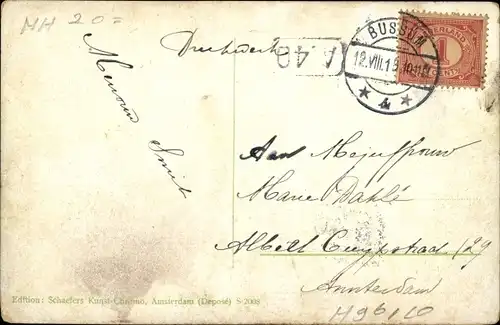 HH 20=
Drukwerk
A. 48
BUSSUM
12.VIII.1
4
NEDERLAND
1
CENT
Menno Smit
Aan Mejuffrouw
Marie Dahlé
Albert Cuypstraat 129
Amsterdam
Edition: Schaefers Kunst-Chromo, Amsterdam (Deposé) S-2008